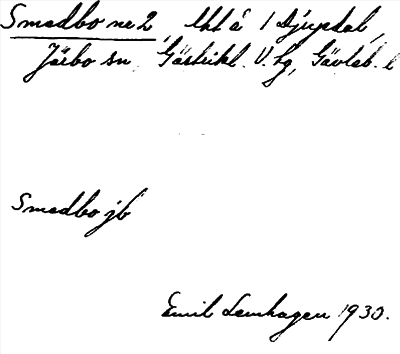 Smedbo nr 2, lht å 1 Djupdal,
Järbo sn Gästrikl. V. hg, Gävleb. l
Smedbo jb
Emil Lenhagen 1930.